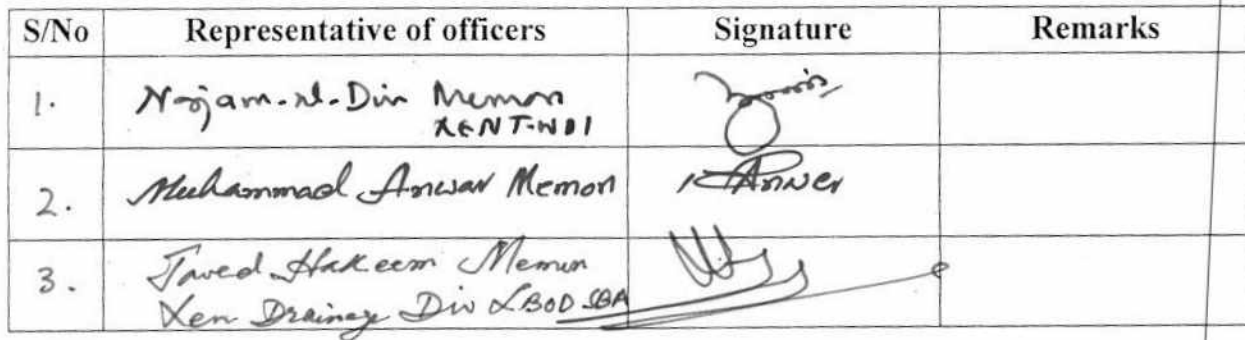 S/No Representative of officers Signature Remarks
1. Najam-ul-Din Memon
XEN T.WDI
2. Muhammad Anwar Memon Anwer
3. Javed Hakeem Memon
Xen Drainage Div LBOD SBA